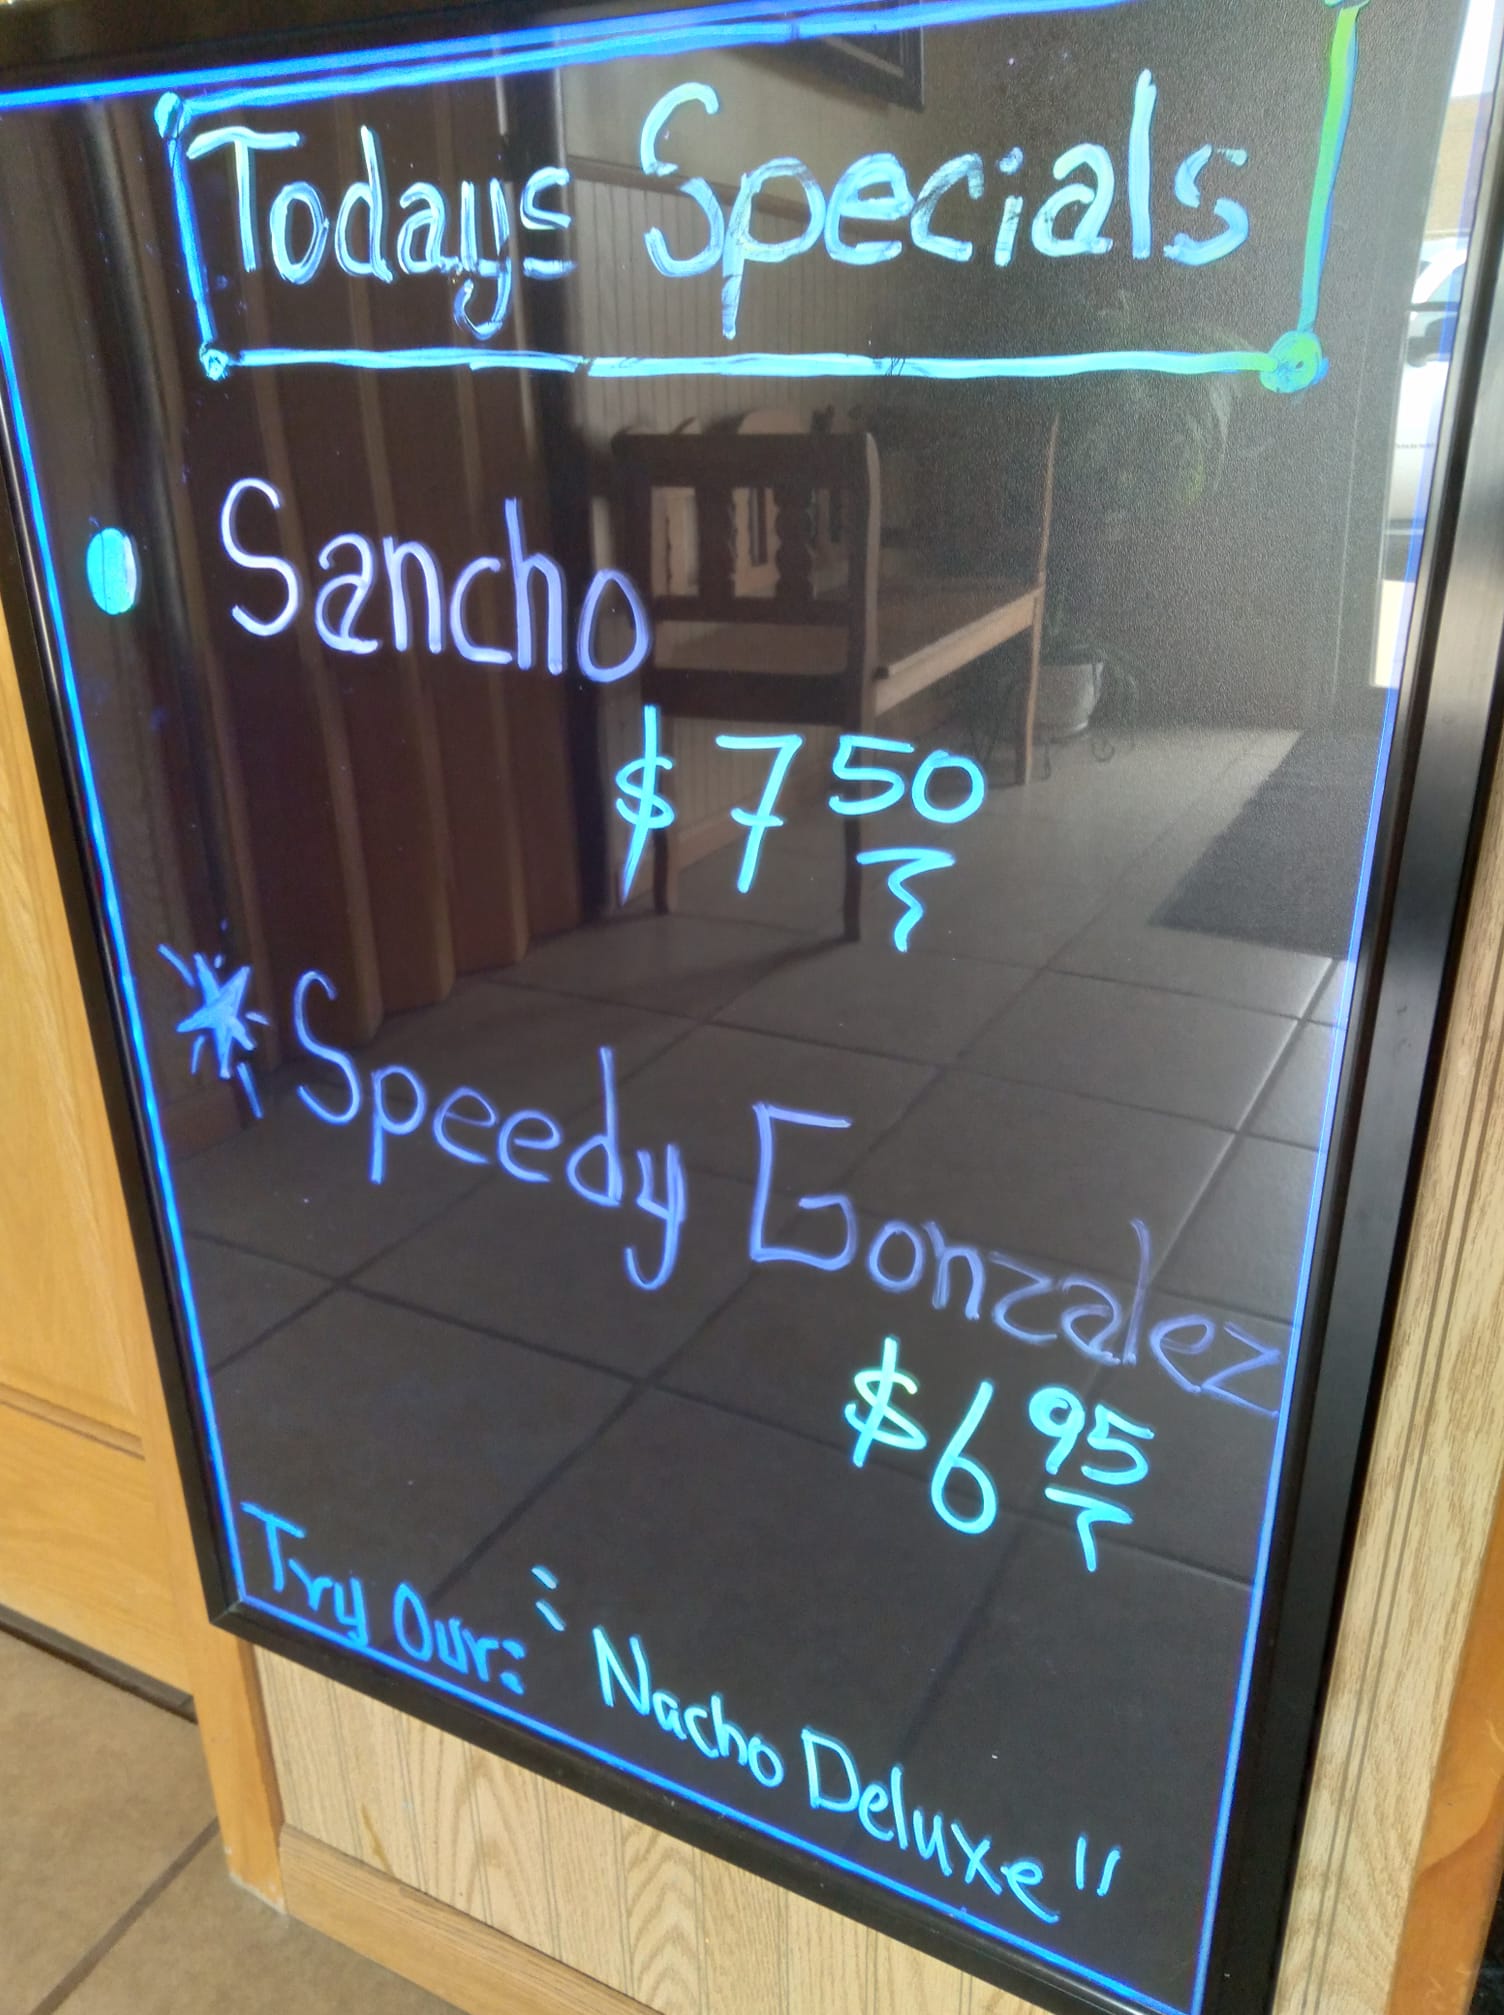 Todays Specials
Sancho
$7 50
Speedy Gonzalez
$6 95
Try Our: "Nacho Deluxe"